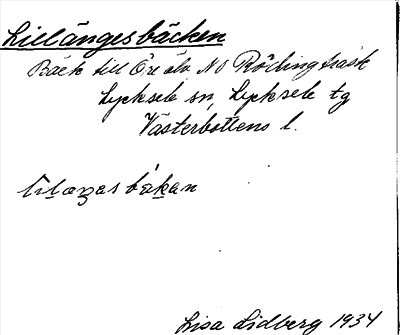 Lillängesbäcken
Bäck till Öre älv NO Rödingträsk
Lycksele sn, Lycksele tg
Västerbottens l.
Lisa Lidberg 1934